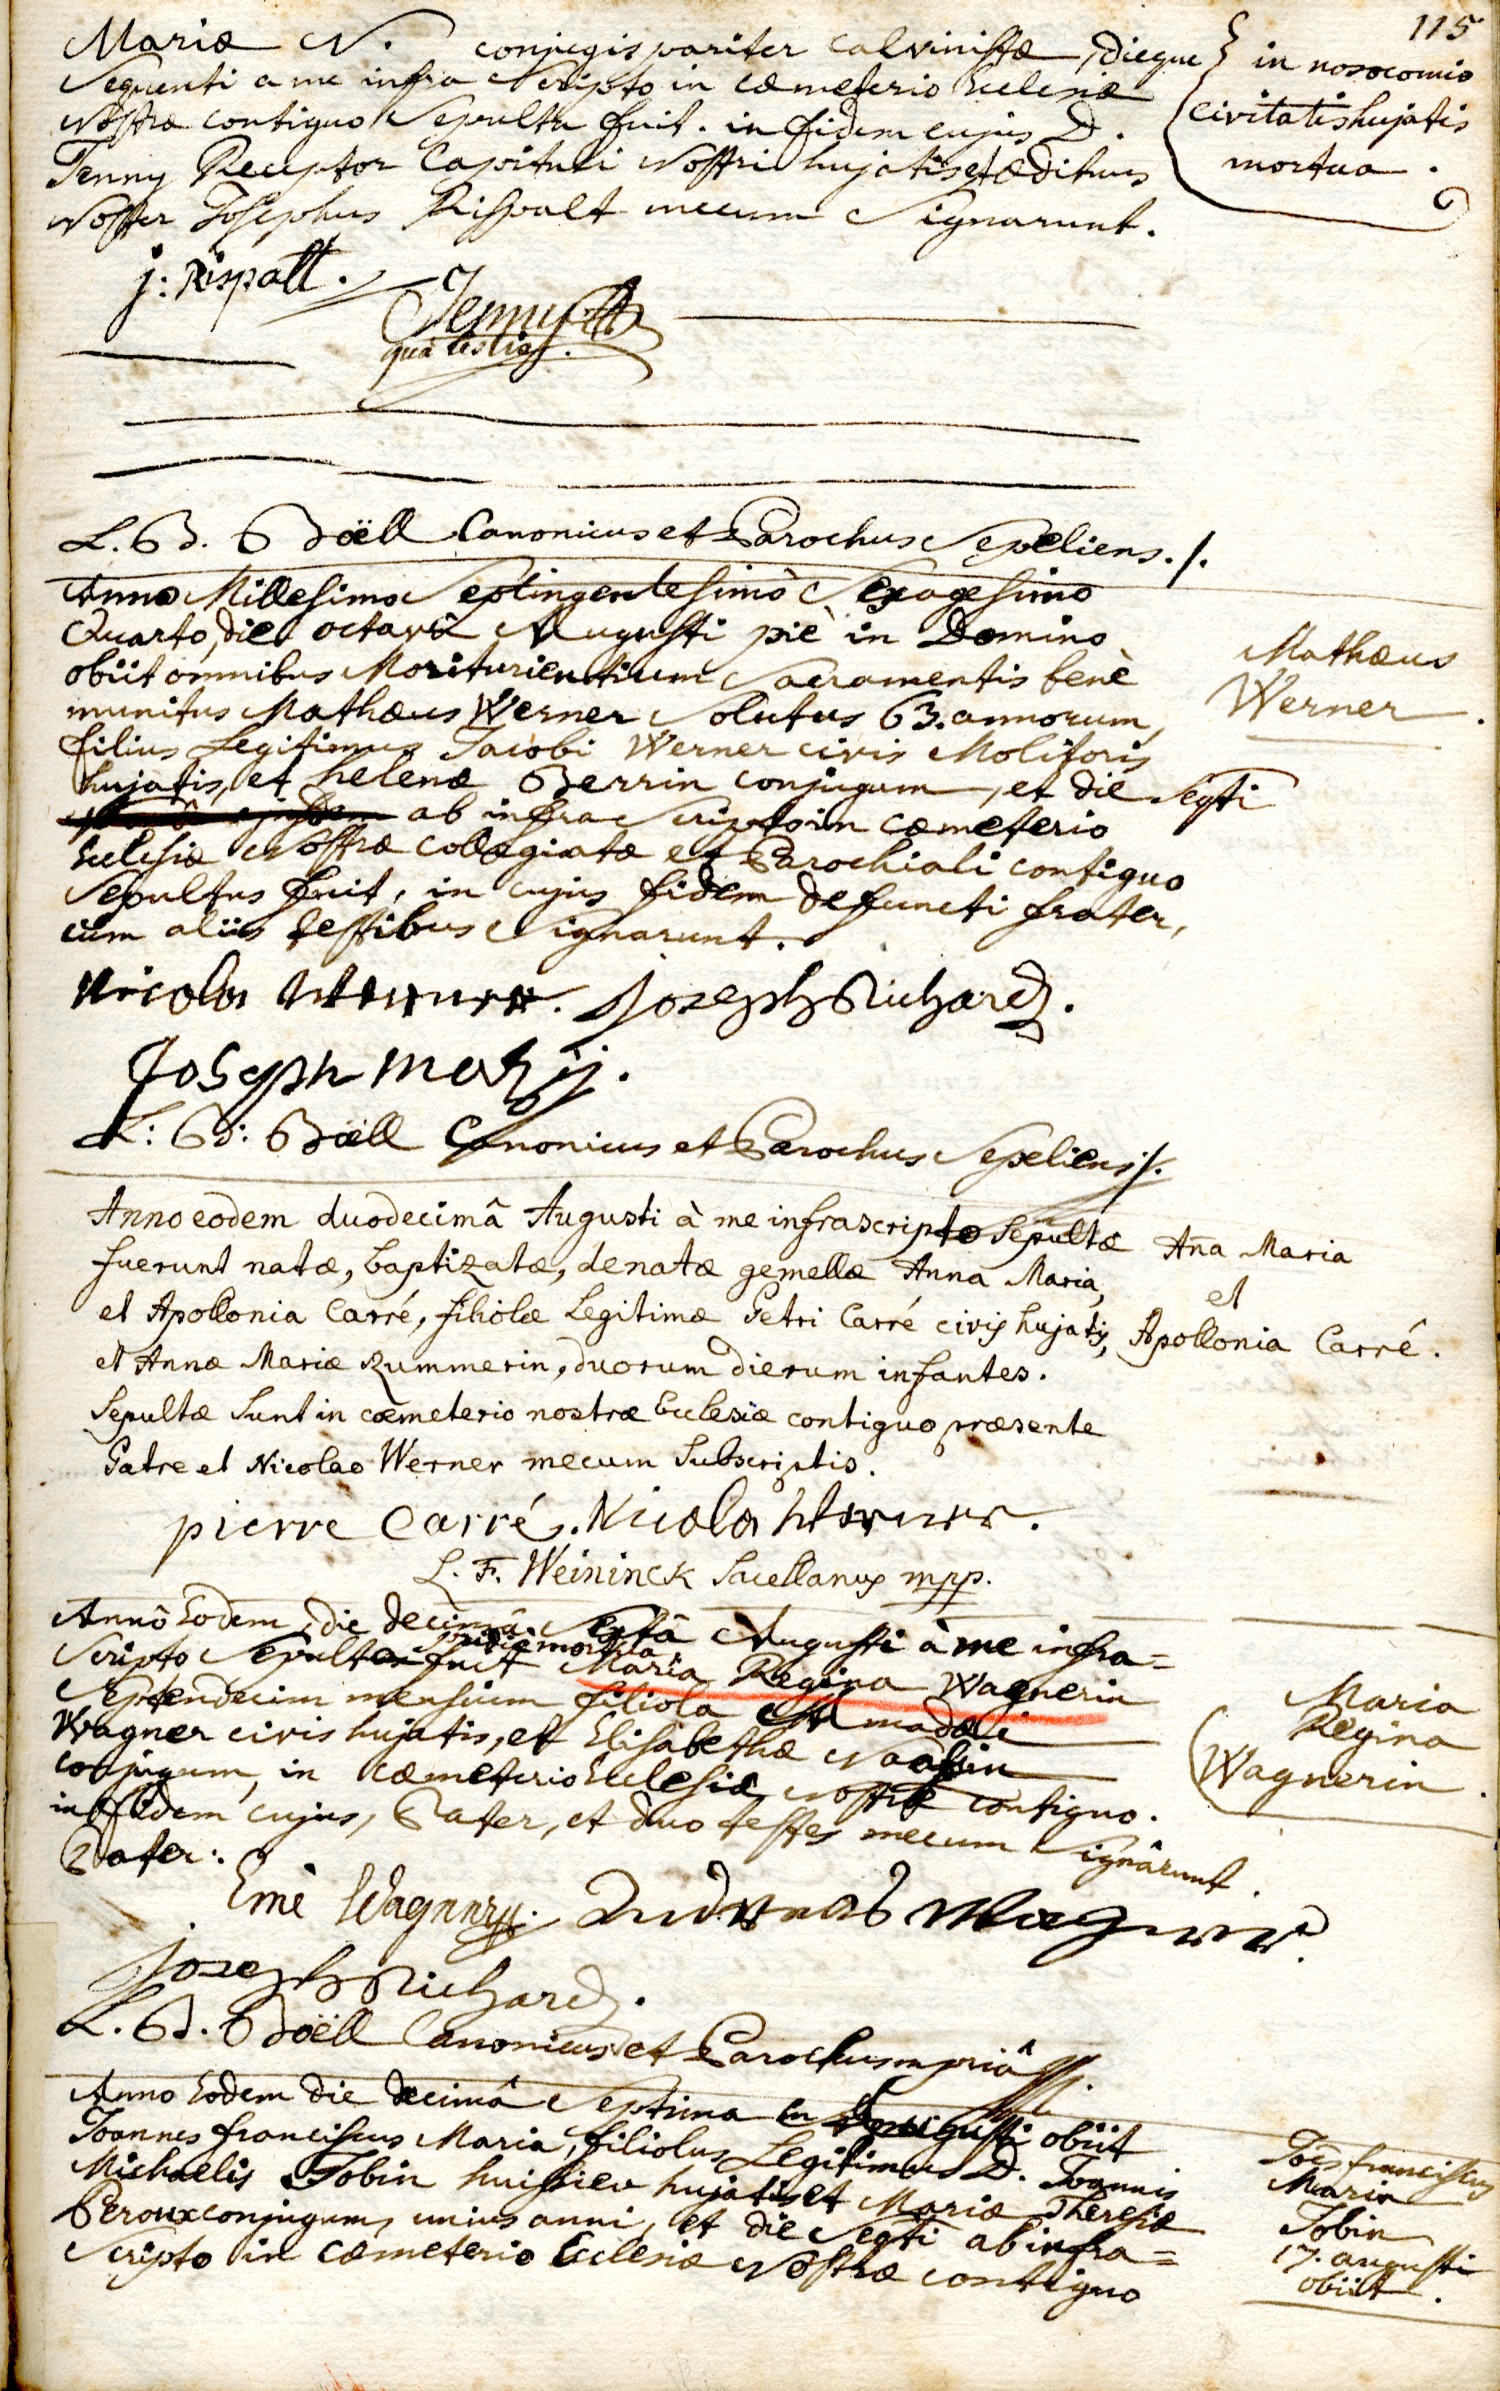 115
Mariæ N. conjugis pariter calvinistæ, dieque
sequenti a me infra scripto in cæmeterio Ecclesiæ
Nostræ contiguo sepulta fuit. in fidem cujus D.
Jenny Receptor Capituli Nostri hujatis et ædituus
Noster Josephus Rispalt mecum signarunt.
in nosocomio
civitatis hujatis
mortua.
j: Rispalt.
Jenny
qua testis.
L. B. Boëll Canonicus et Parochus Sepeliens./.
Anno Millesimo Septingentesimò Sexagesimo
Quarto, die octavâ Augusti piè in Domino
obiit omnibus Moriturientium Sacramentis benè
munitus Mathæus Werner solutus 63. annorum,
filius Legitimus Jacobi Werner civis Molitoris
hujatis, et helenæ Berrin conjugum, et die seqti
ab infra scripto in cæmeterio
Ecclesiæ Nostræ collegiatæ et Parochiali contiguo
sepultus fuit, in cujus fidem defuncti frater,
cum aliis testibus signarunt.
Mathæus
Werner.
Nicola Werner. Joseph Richard.
Joseph marÿ.
L: B: Boëll Canonicus et Parochus Sepeliens/.
Anno eodem duodecimâ Augusti à me infrascripto sepultæ
fuerunt natæ, baptizatæ, denatæ gemellæ Anna Maria,
et Apollonia Carré, filiolæ Legitimæ Petri Carré civis hujatis,
et Annæ Mariæ Kummerin, duorum dierum infantes.
Sepultæ sunt in cœmeterio nostræ Ecclesiæ contiguo præsente
Patre et Nicolao Werner mecum subscriptis.
Aña Maria
et
Apollonia Carré.
pierre Carré. Nicola Werner.
L. F. Weininck Sacellanus mpp.
Annô Eodem, die decimâ sextâ Augusti à me infra=
pridie mortua
scripto sepulta fuit Maria Regina Wagnerin
septendecim mensium filiola Amadæi
Wagner civis hujatis, et Elisabethæ Naassin
conjugum, in cæmeterio Ecclesiæ Nostræ contiguo.
in fidem cujus, Pater, et duo testes mecum signârunt.
Pater:
Maria
Regina
Wagnerin.
Emè Wagnner. Wagner
Joseph Richard.
L. B. Boëll Canonicus et Parochus mpriâ
Anno Eodem die decimâ septima Augusti obiit
Joannes franciscus Maria, filiolus Legitimus D. Joannis
Michaelis Tobin huissier hujatis et Mariæ Theresiæ
Peroux conjugum, unius anni, et die seqti ab infra=
scripto in cæmeterio Ecclesiæ Nostræ contiguo
Joës franciscus
Maria
Tobin
17. augusti
obiit.